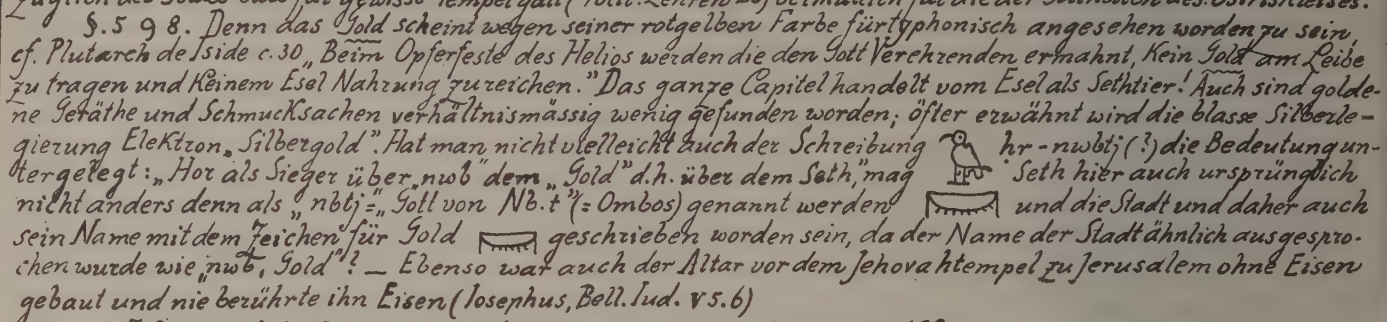 §.598. Denn das Gold scheint wegen seiner rotgelben Farbe für typhonisch angesehen worden zu sein,
cf. Plutarch de Iside c.30 „Beim Opferfeste des Helios werden die den Gott Verehrenden ermahnt, kein Gold am Leibe
zu tragen und keinem Esel Nahrung zu reichen." Das ganze Capitel handelt vom Esel als Sethtier! Auch sind golde-
ne Geräthe und Schmucksachen verhältnismässig wenig gefunden worden; öfter erwähnt wird die blasse Silberle-
gierung Elektron „Silbergold". Hat man nicht vielleicht auch der Schreibung hr-nwbtj (?) die Bedeutung un-
tergelegt: „Hor als Sieger über „nwb" dem „Gold" d.h. über dem Seth", mag Seth hier auch ursprünglich
nicht anders denn als „nbtj" = „Gott von Nb.t" (= Ombos) genannt werden und die Stadt und daher auch
sein Name mit dem Zeichen für Gold geschrieben worden sein, da der Name der Stadt ähnlich ausgespro-
chen wurde wie „nwb, Gold"? — Ebenso war auch der Altar vor dem Jehovahtempel zu Jerusalem ohne Eisen
gebaut und nie berührte ihn Eisen (Iosephus, Bell. Iud. V 5.6)